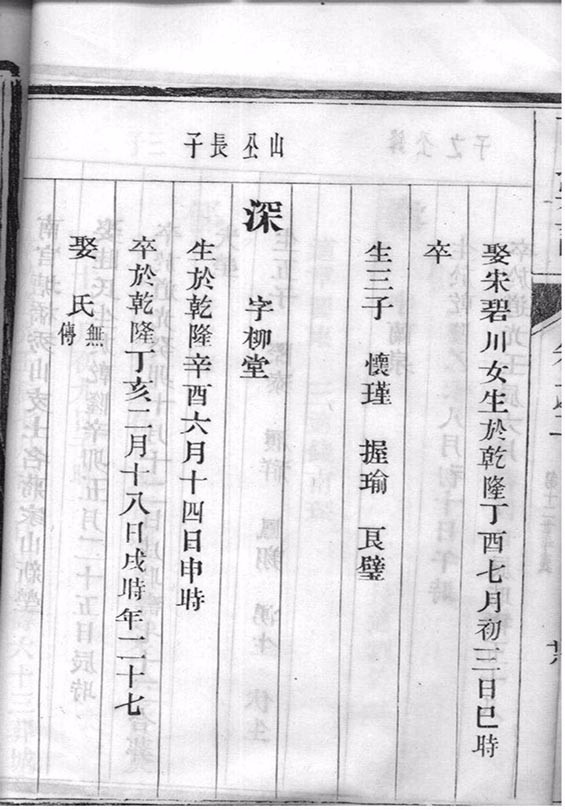 山公長子
娶朱碧川女生於乾隆丁酉七月初三日巳時
卒
生三子 懷瑾 握瑜 艮璧
深 字柳堂
生於乾隆辛酉六月十四日申時
卒於乾隆丁亥二月十八日戌時年二十七
娶 氏 無傳